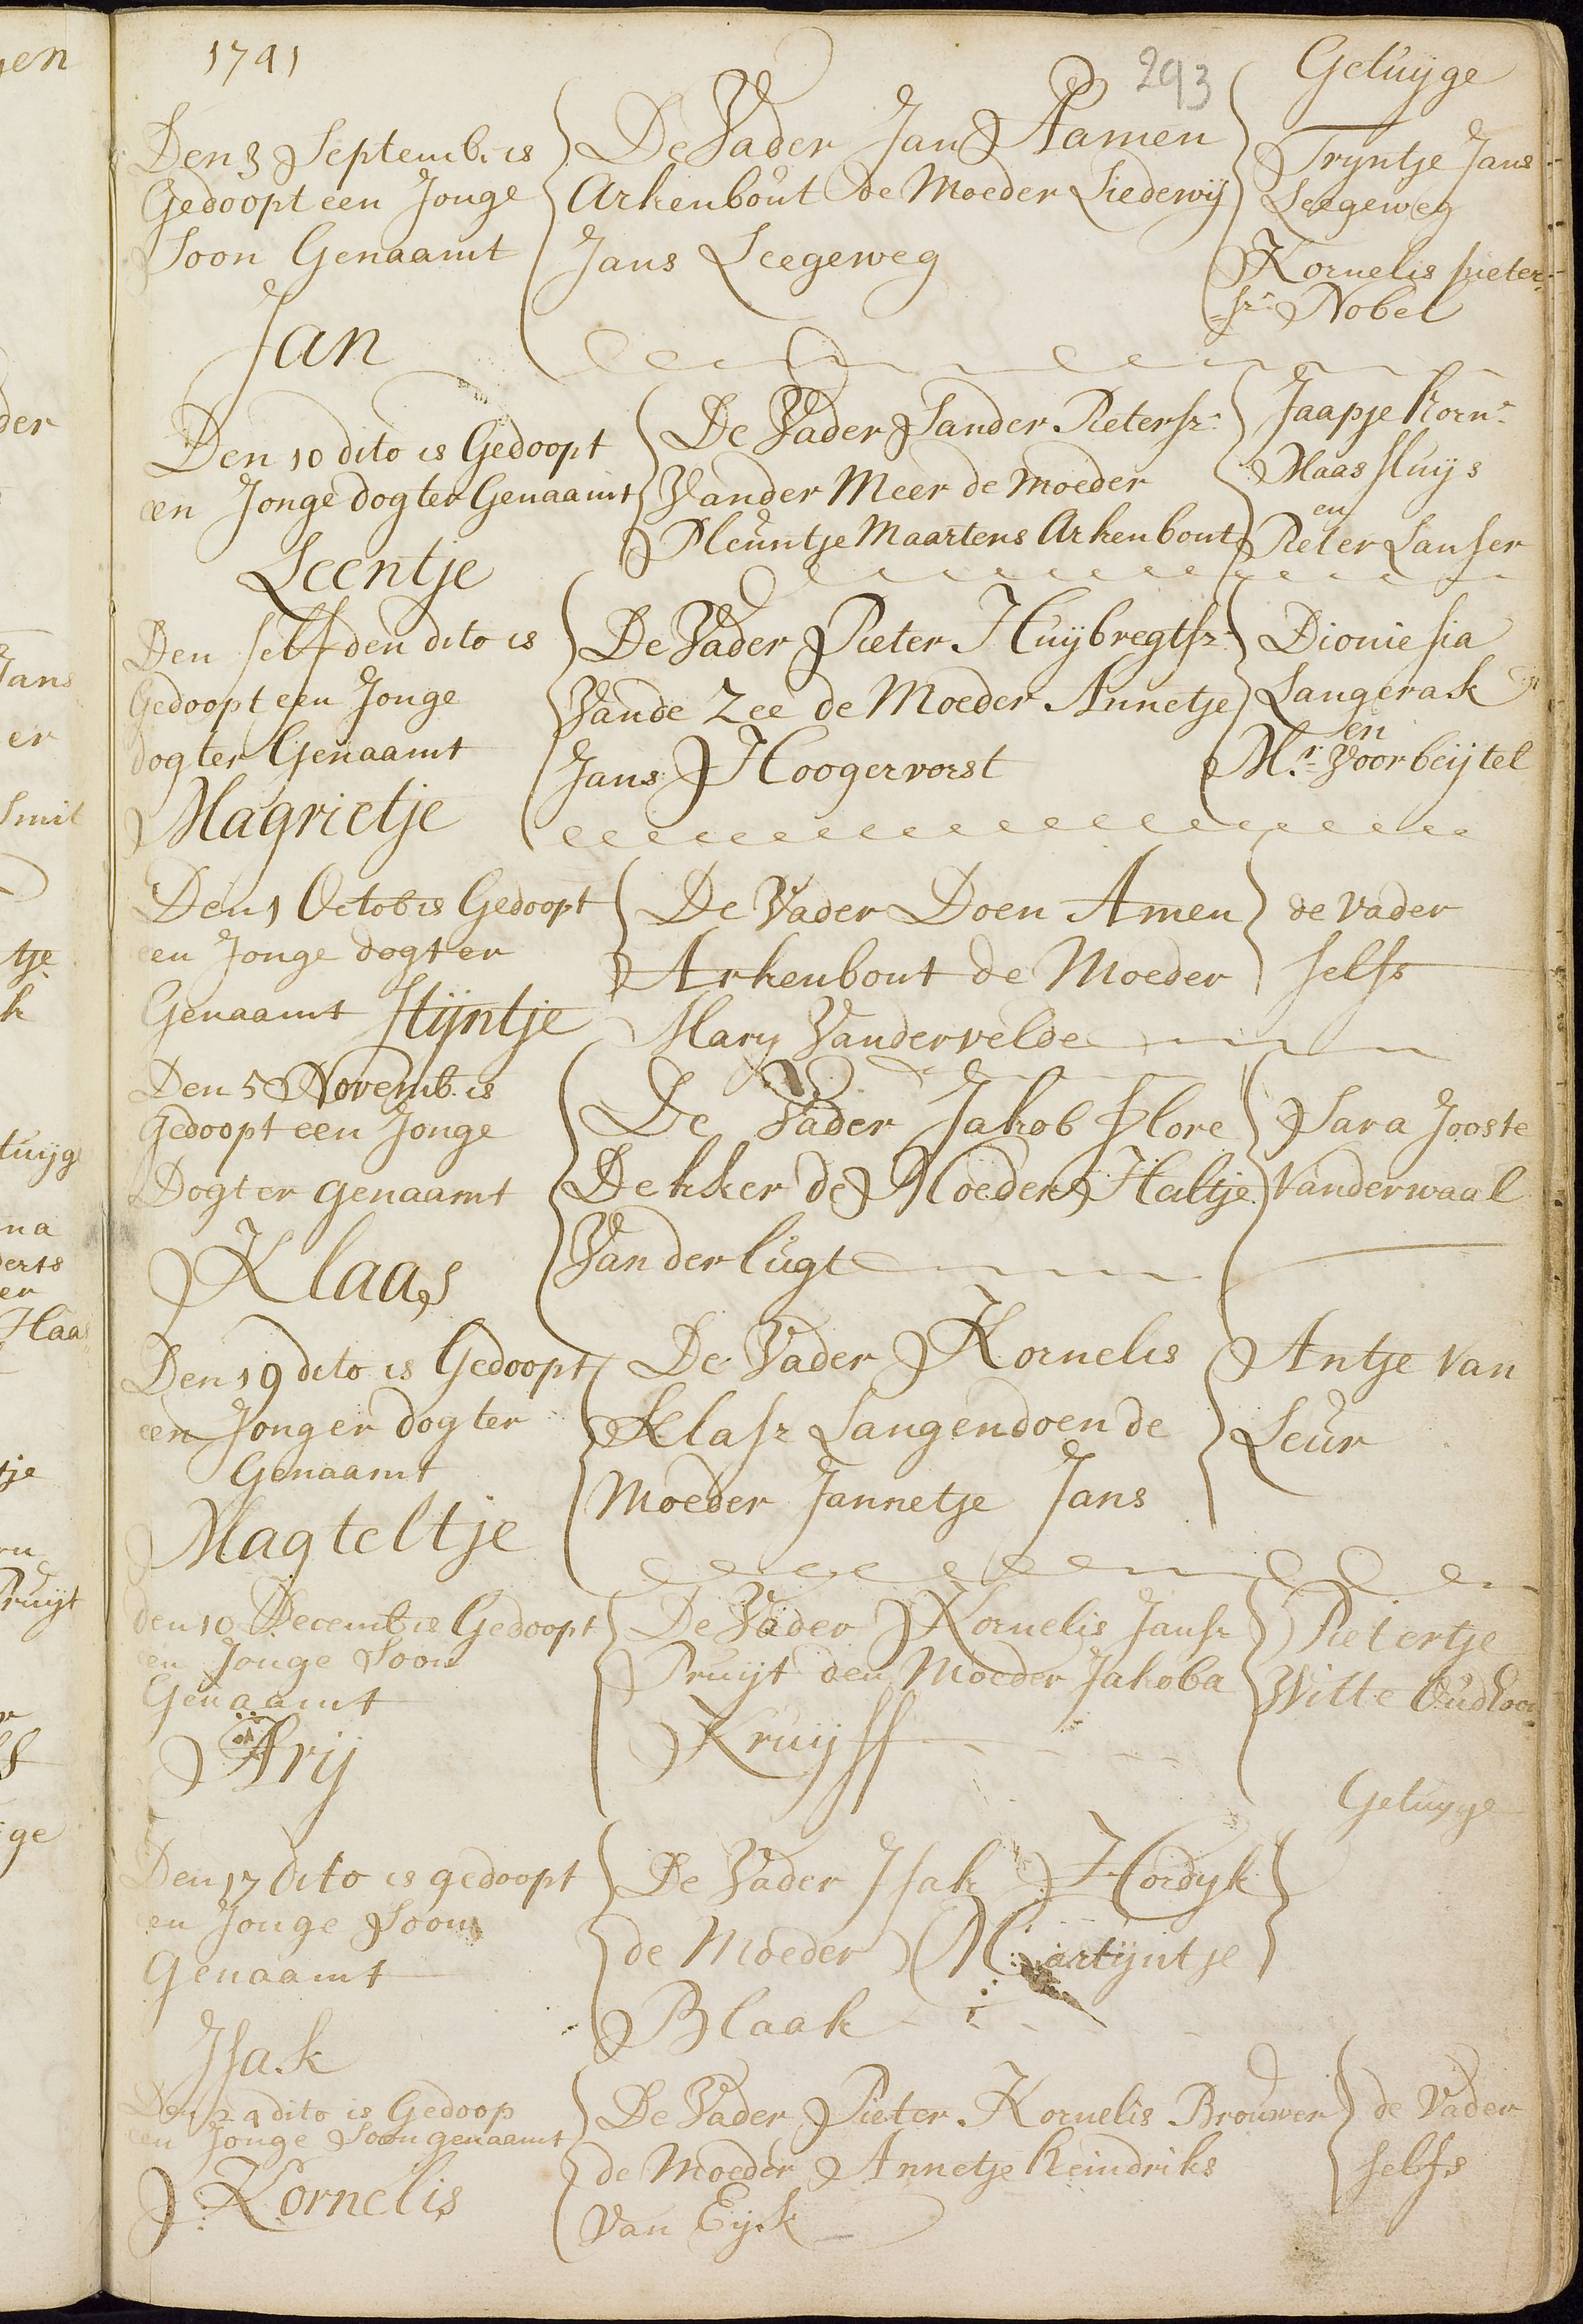 1741
293
Getuijge
Den 3 Septemb. is
Gedoopt een Jonge
Soon Genaamt
Jan
De Vader Jan Aamen
Arkenbout de Moeder Liedewij
Jans Leegeweg
Tryntje Jans
Leegeweg
Kornelis pieter-
=sz: Nobel
Den 10 dito is Gedoopt
een Jonge dogter Genaamt
Leentje
De Vader Sander Pietersz:
Vander Meer de moeder
Pleuntje Maartens Arkenbout
Jaapje Korn:
Maassluijs
en
Pieter Lanser
Den selfden dito is
Gedoopt een Jonge
dogter Genaamt
Magrietje
De Vader Pieter Huijbregtsz:
Vande Zee de Moeder Annetje
Jans Hoogervorst
Dioniesia
Langerak
en
Mr: Voorbeijtel
Den 1 Octob is Gedoopt
een Jonge dogter
Genaamt Stijntje
De Vader Doen Amen
Arkenbout de Moeder
Mary Vandervelde
de vader
selfs
Den 5 Novemb. is
Gedoopt een Jonge
Dogter genaamt
Klaas
De Vader Jakob Flore
Dekker de Moeder Heiltje
Van der lugt
Sara Jooste
Vanderwaal
Den 19 dito is Gedoopt
een Jonger dogter
Genaamt
Magteltje
De Vader Kornelis
Klasz Langendoen de
Moeder Jannetje Jans
Antje Van
Leur
den 10 Decemb is Gedoopt
een Jonge Soon
Genaamt
Arij
De Vader Kornelis Jansz
Pruijt den Moeder Jakoba
Kruijff
Pietertje
Witte
Getuyge
Den 17 dito is gedoopt
een Jonge Soon
Genaamt
Isak
De Vader Isak Hordyk
de Moeder Martijntje
Blaak
dito is Gedoop
een Jonge Soon genaamt
Kornelis
De Vader Pieter Kornelis Brouwer
de Moeder Annetje Heindriks
Van Eijk
de Vader
selfs